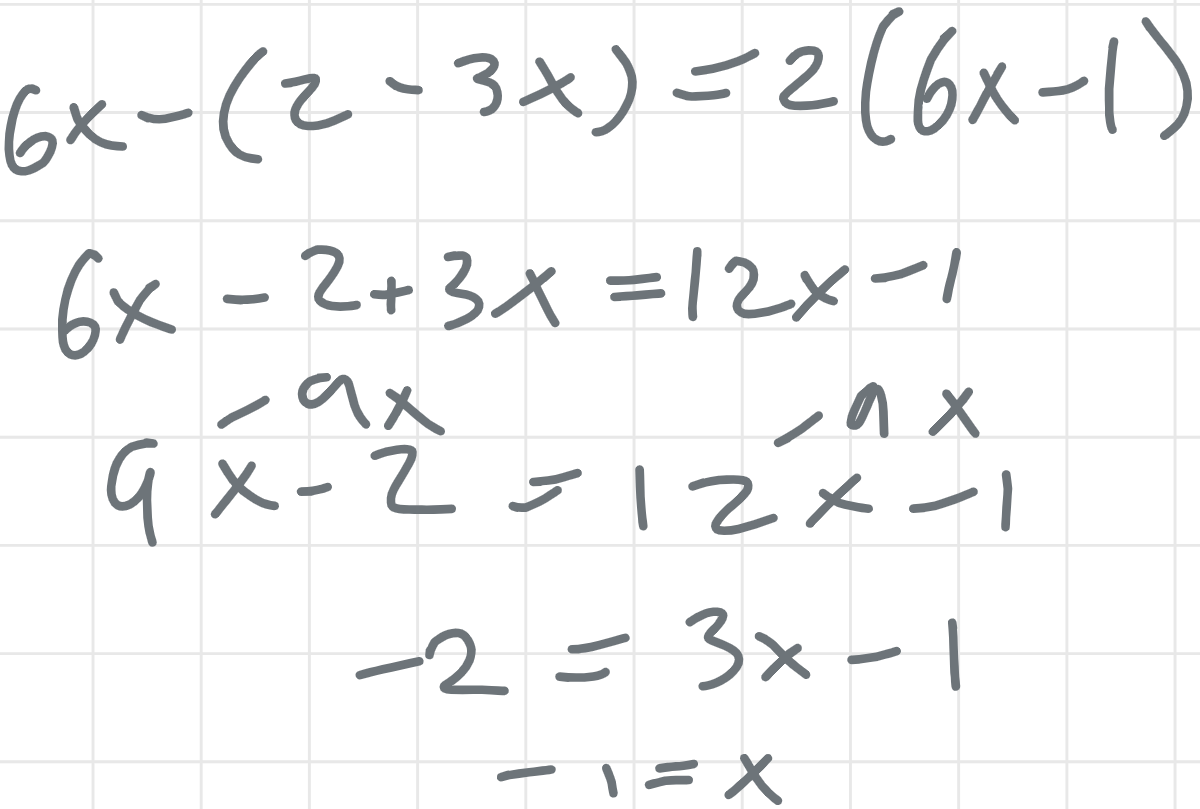 6x - (2 - 3x) = 2(6x - 1)
6x - 2 + 3x = 12x - 1
- 9x - 9x
9x - 2 = 12x - 1
-2 = 3x - 1
-1 = x